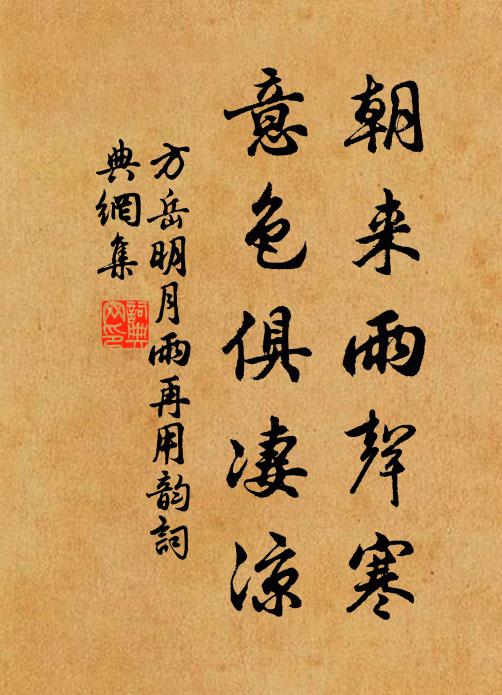 朝来雨聲寒
意色俱凄涼
方岳明月雨再用韵詞
典網集
詞典网印